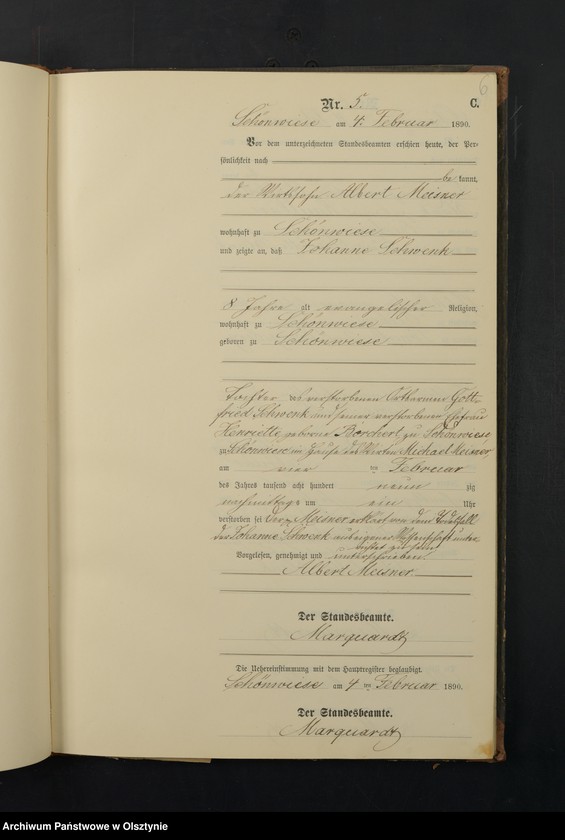 6
Nr. 5. C.
Schönwiese am 4. Februar 1890.
Vor dem unterzeichneten Standesbeamten erschien heute, der Per-
sönlichkeit nach
be kannt,
der Wirthsohn Albert Meisner
wohnhaft zu Schönwiese
und zeigte an, daß Johanne Schwenk
8 Jahre alt evangelischer Religion,
wohnhaft zu Schönwiese
geboren zu Schönwiese
Tochter des verstorbenen Ortsarmen Gott-
fried Schwenk und seiner verstorbenen Ehefrau
Henriette geborne Borchert zu Schönwiese
zu Schönwiese im Hause des Wirthen Michael Meisner
am vier ten Februar
des Jahres tausend acht hundert neun zig
nachmittags um ein Uhr
verstorben sei Meisner erklärt von dem Todesfall
der Johanne Schwenk aus eigener Wissenschaft unter-
richtet zu sein
Vorgelesen, genehmigt und unterschrieben
Albert Meisner
Der Standesbeamte.
Marquardt
Die Uebereinstimmung mit dem Hauptregister beglaubigt.
Schönwiese am 4 ten Februar 1890.
Der Standesbeamte.
Marquardt
Archiwum Państwowe w Olsztynie